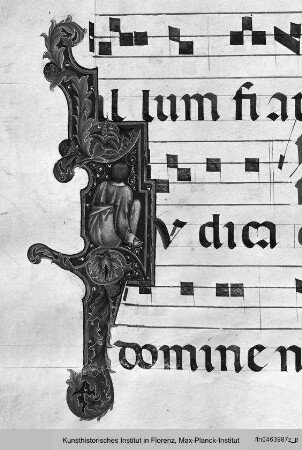 ul lum fi at
Iv dica
domine n
Kunsthistorisches Institut in Florenz, Max-Planck-Institut fln0463987z_p